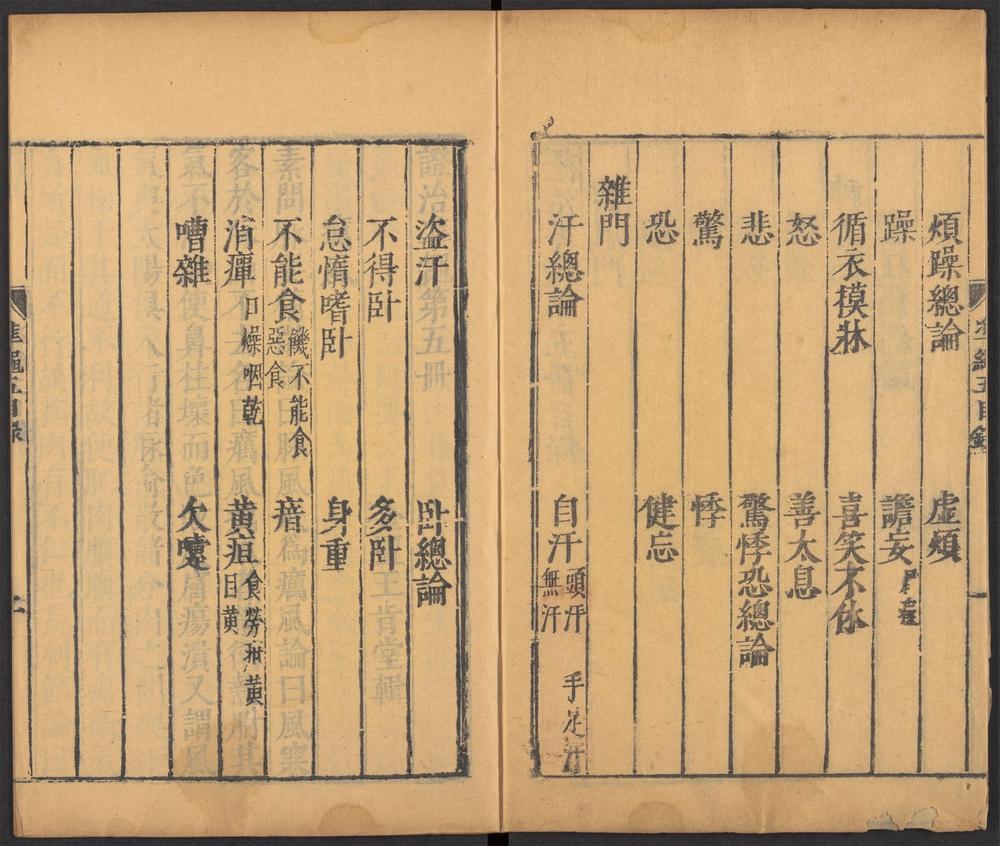 煩躁總論 虛煩
躁 譫妄
循衣摸牀 喜笑不休
怒 善太息
悲 驚悸恐總論
驚 悸
恐 健忘
雜門
汗總論 自汗 頭汗 手足汗 無汗
盜汗 卧總論
不得卧 多卧
怠惰嗜卧 身重
不能食 饑不能食 惡食 瘖
消癉 口燥咽乾 黃疸 食勞疳黃 目黃
嘈雜 欠嚏
準繩五目錄